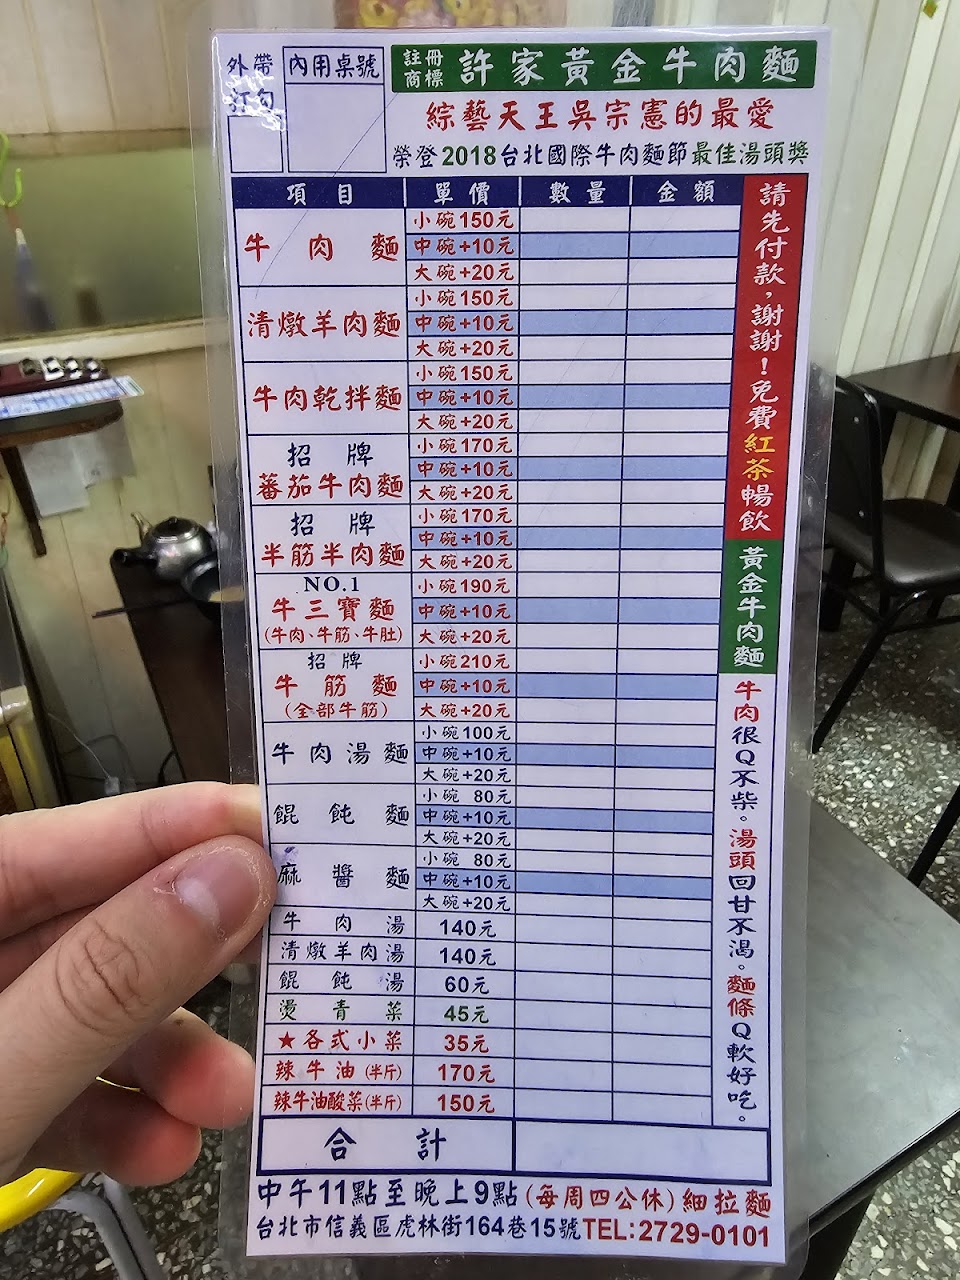 外帶
打包
內用桌號
註冊
商標
許家黃金牛肉麵
綜藝天王吳宗憲的最愛
榮登2018台北國際牛肉麵節最佳湯頭獎
項目 單價 數量 金額
牛肉麵
小碗150元
中碗+10元
大碗+20元
清燉羊肉麵
小碗150元
中碗+10元
大碗+20元
牛肉乾拌麵
小碗150元
中碗+10元
大碗+20元
招牌
蕃茄牛肉麵
小碗170元
中碗+10元
大碗+20元
招牌
半筋半肉麵
小碗170元
中碗+10元
大碗+20元
NO.1
牛三寶麵
(牛肉、牛筋、牛肚)
小碗190元
中碗+10元
大碗+20元
招牌
牛筋麵
(全部牛筋)
小碗210元
中碗+10元
大碗+20元
牛肉湯麵
小碗100元
中碗+10元
大碗+20元
餛飩麵
小碗 80元
中碗+10元
大碗+20元
麻醬麵
小碗 80元
中碗+10元
大碗+20元
牛肉湯 140元
清燉羊肉湯 140元
餛飩湯 60元
燙青菜 45元
★各式小菜 35元
辣牛油(半斤) 170元
辣牛油酸菜(半斤) 150元
合計
請先付款,謝謝!免費紅茶暢飲
黃金牛肉麵
牛肉很Q不柴。湯頭回甘不渴。麵條Q軟好吃。
中午11點至晚上9點(每周四公休)細拉麵
台北市信義區虎林街164巷15號TEL:2729-0101